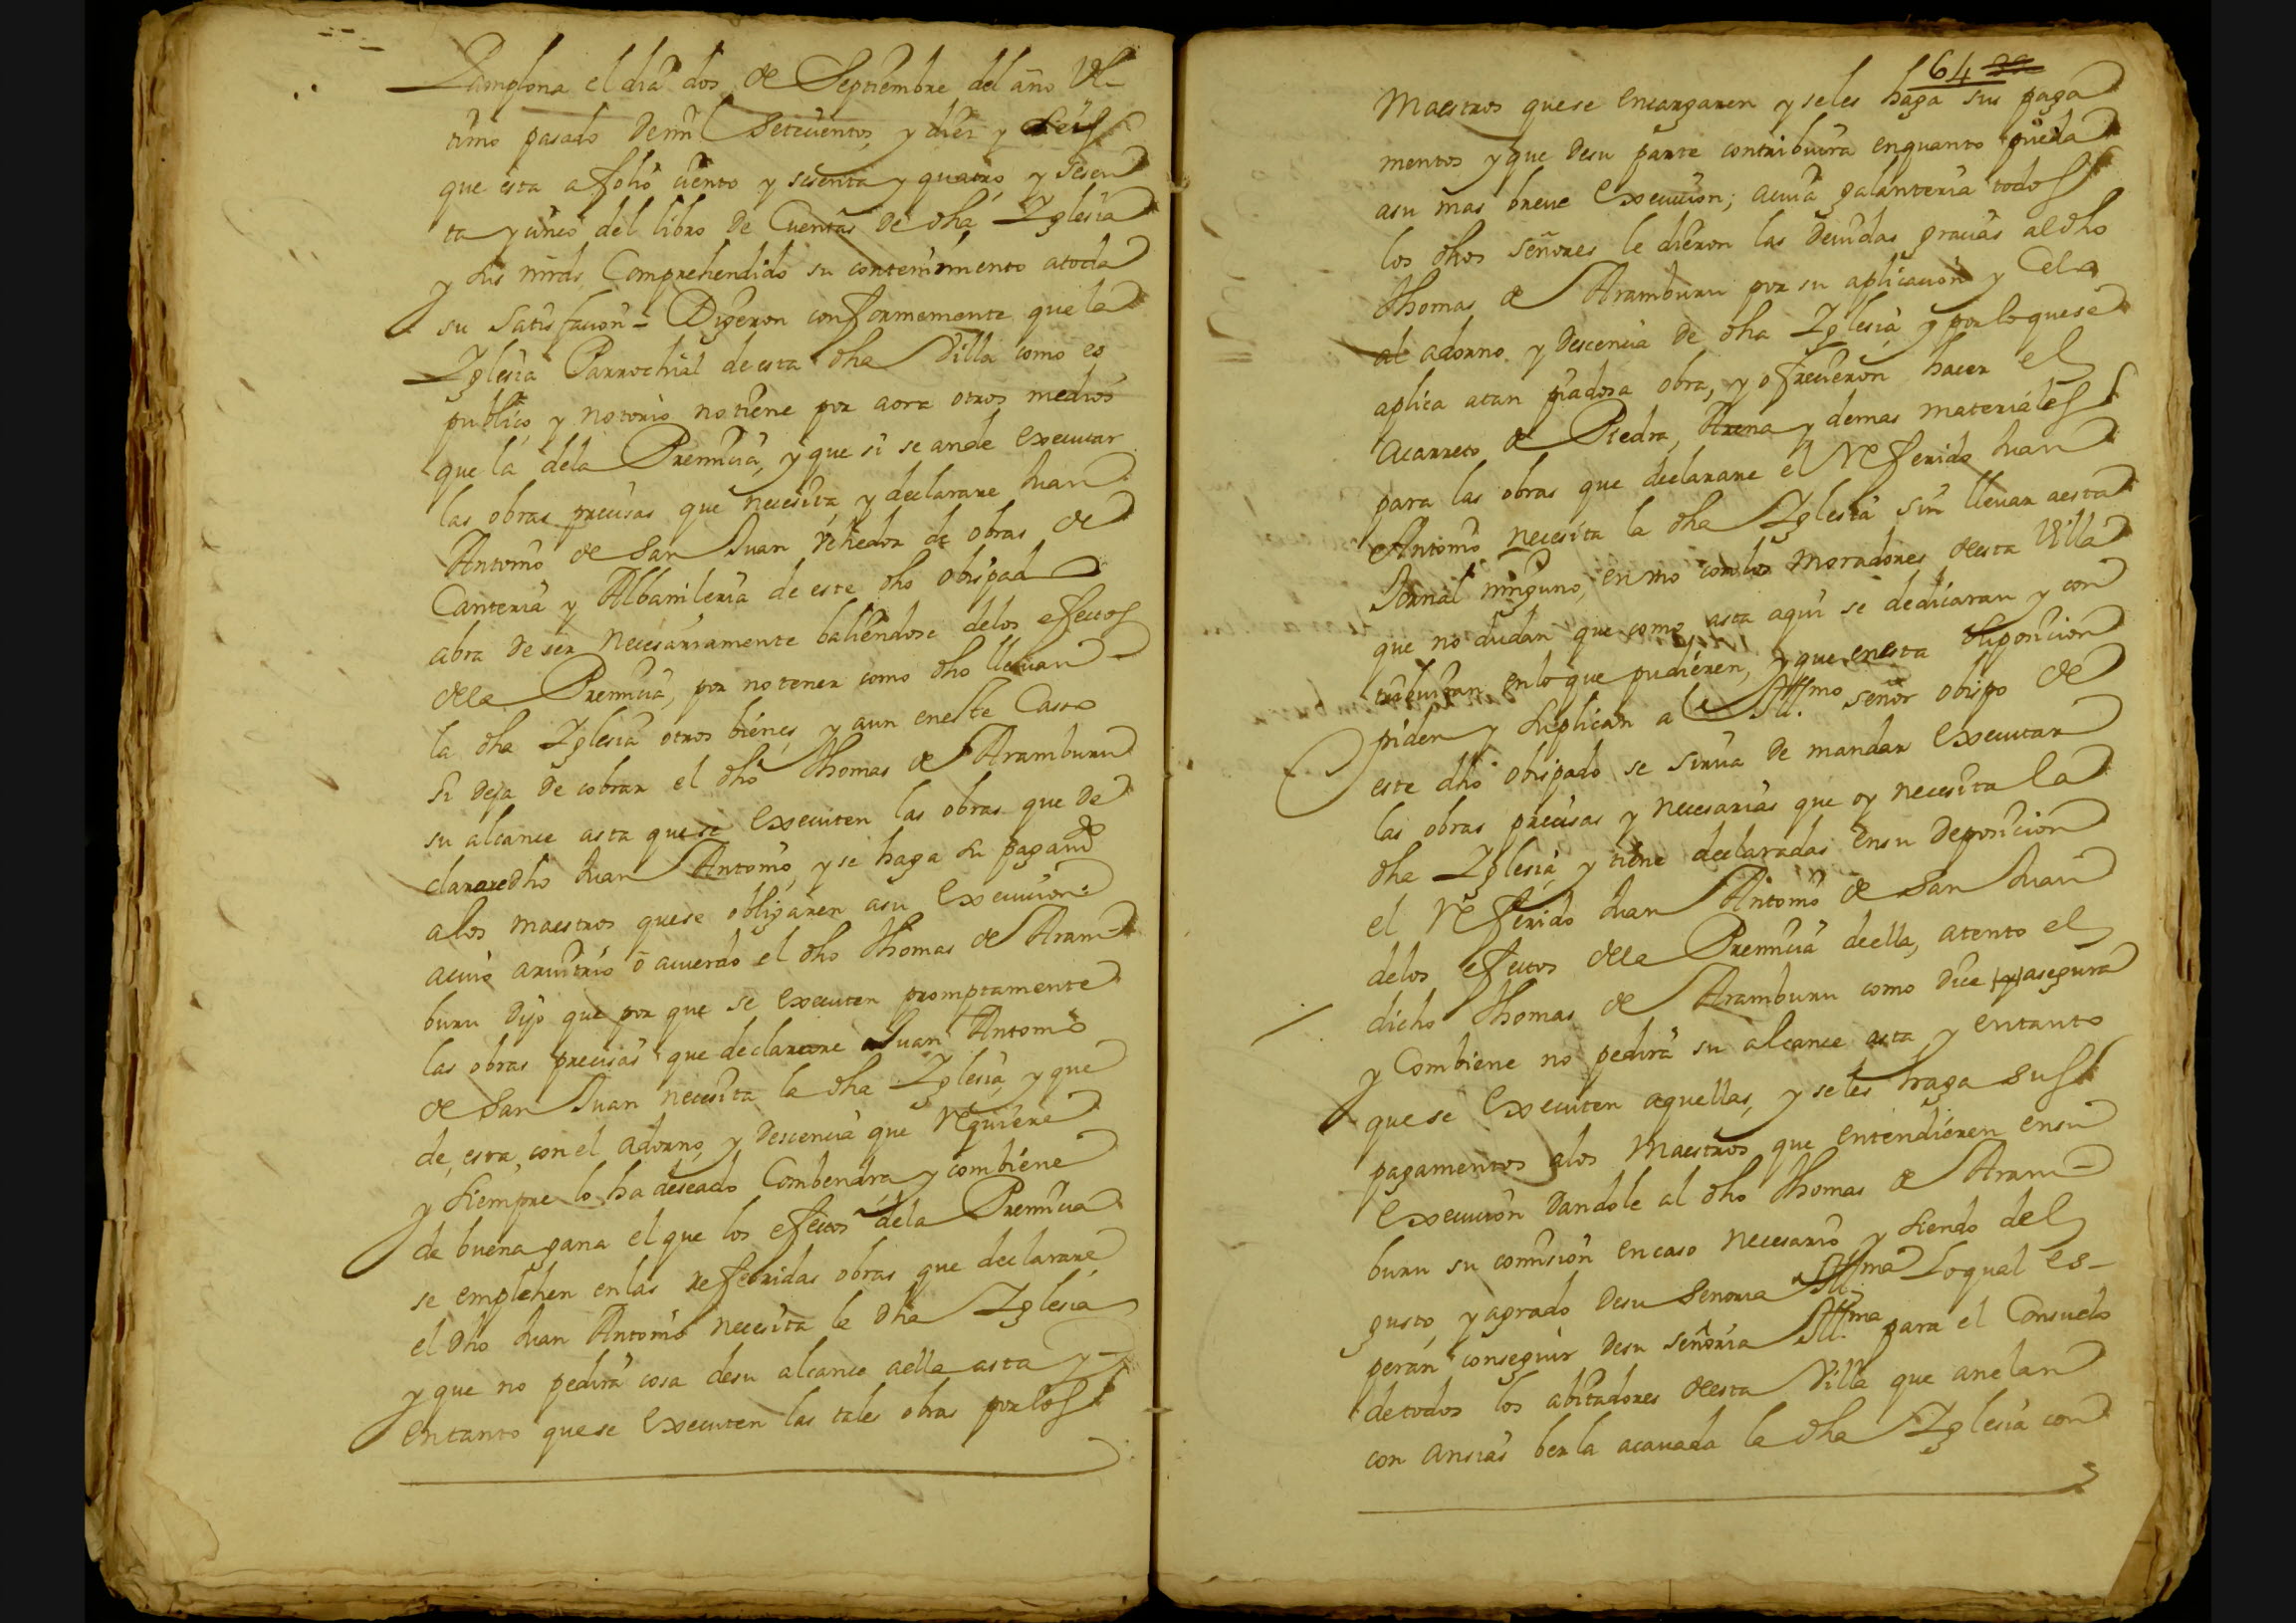 Pamplona el dia dos de Septiembre del año Vl-
timo pasado demil setecientos, y diez y seis
que esta afolio ciento y sesenta y quatro, y sesen
ta y cinco del libro de Cuentas de dha Yglesia
y sus mrds, Comprehendido su contenimiento atoda
su satisfacion = Digeron conformemente que la
Yglesia Parrochial deesta dha Villa como es
publico, y notorio notiene por aora otros medios
que la dela Premicia, y que si se ande executar
las obras precisas que necesita, y declarare Juan
Antonio de San Juan Vehedor de obras de
Canteria y Albanileria de este dho obispad
abra de ser necesariamente baliendose delos efectos
dela Premicia, por notener como dho llevan
la dha Yglesia otros bienes, y aun eneste Caso
si deja de cobrar el dho Thomas de Aramburu
su alcance asta quese executen las obras que de
clararedho Juan Antonio, y se haga su pagamto
alos maestros quese obligaren asu execucion:
acuio aruitrio o acuerdo el dho Thomas de Aram-
buru dijo que por que se executen promptamente
las obras precisas que declarare Juan Antonio
de San Juan necesita la dha Yglesia, y que
de, esta, con el adorno, y descencia que Requiere
y siempre lo ha deseado Combendra, y combiene
de buena gana el que los efectos dela Premicia
se emplehen enlas referidas obras que declarare
el dho Juan Antonio necesita la dha Yglesia
y que no pedira cosa desu alcance aella asta y-
entanto quese executen las tales obras porlos
64
Maestros quese encargaren y seles haga sus paga
mentos y que desu parte contribuira enquanto pueda
asu mas breue execucion; acuia galanteria todos
los dhos señores le dieron las deuidas gracias aldho
Thomas de Aramburu por su aplicacion y Cela
al adorno, y descencia de dha Yglesia, y porloquese
aplica atan piadosa obra, y ofrecieron hacer el
acarreto de Piedra, Arena y demas materiales
para las obras que declarare el Referido Juan
Antonio necesita la dha Yglesia sin lleuar aesta
Jornal ninguno, enmo con los moradores deesta Villa
que no dudan que como asta aqui se dedicaran y con
tribuiran enloque pudieren, y que enesta disposicion
piden y suplican al Illmo señor obispo de
este dho obispado se sirua de mandar executar
las obras precisas y necesarias que oy necesita la
dha Yglesia, y tiene declaradas ensu deposicion
el Referido Juan Antonio de San Juan
delos efectos dela Premicia deella, atento el
dicho Thomas de Aramburu como dice y asegura
y Combiene no pedira su alcance asta y entanto
quese executen aquellas, y seles haga sus
pagamentos alos Maestros que entendieren ensu
execucion dandole al dho Thomas de Aram-
buru su comision encaso necesario y siendo del
gusto, y agrado desu senoria Illma Loqual es-
peran conseguir desu señoria Illma para el Consuelo
detodos los abitadores deesta Villa que anelan
con ansias berla acauada la dha Yglesia con